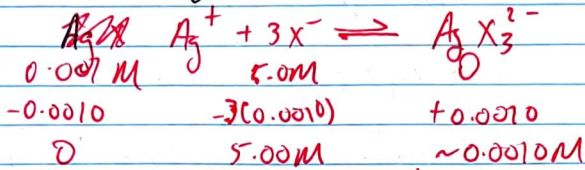 Ag⁺ + 3x⁻ ⇌ AgX₃²⁻
0.001 M 5.0M 0
-0.0010 -3(0.0010) +0.0010
0 5.00M ~0.0010M